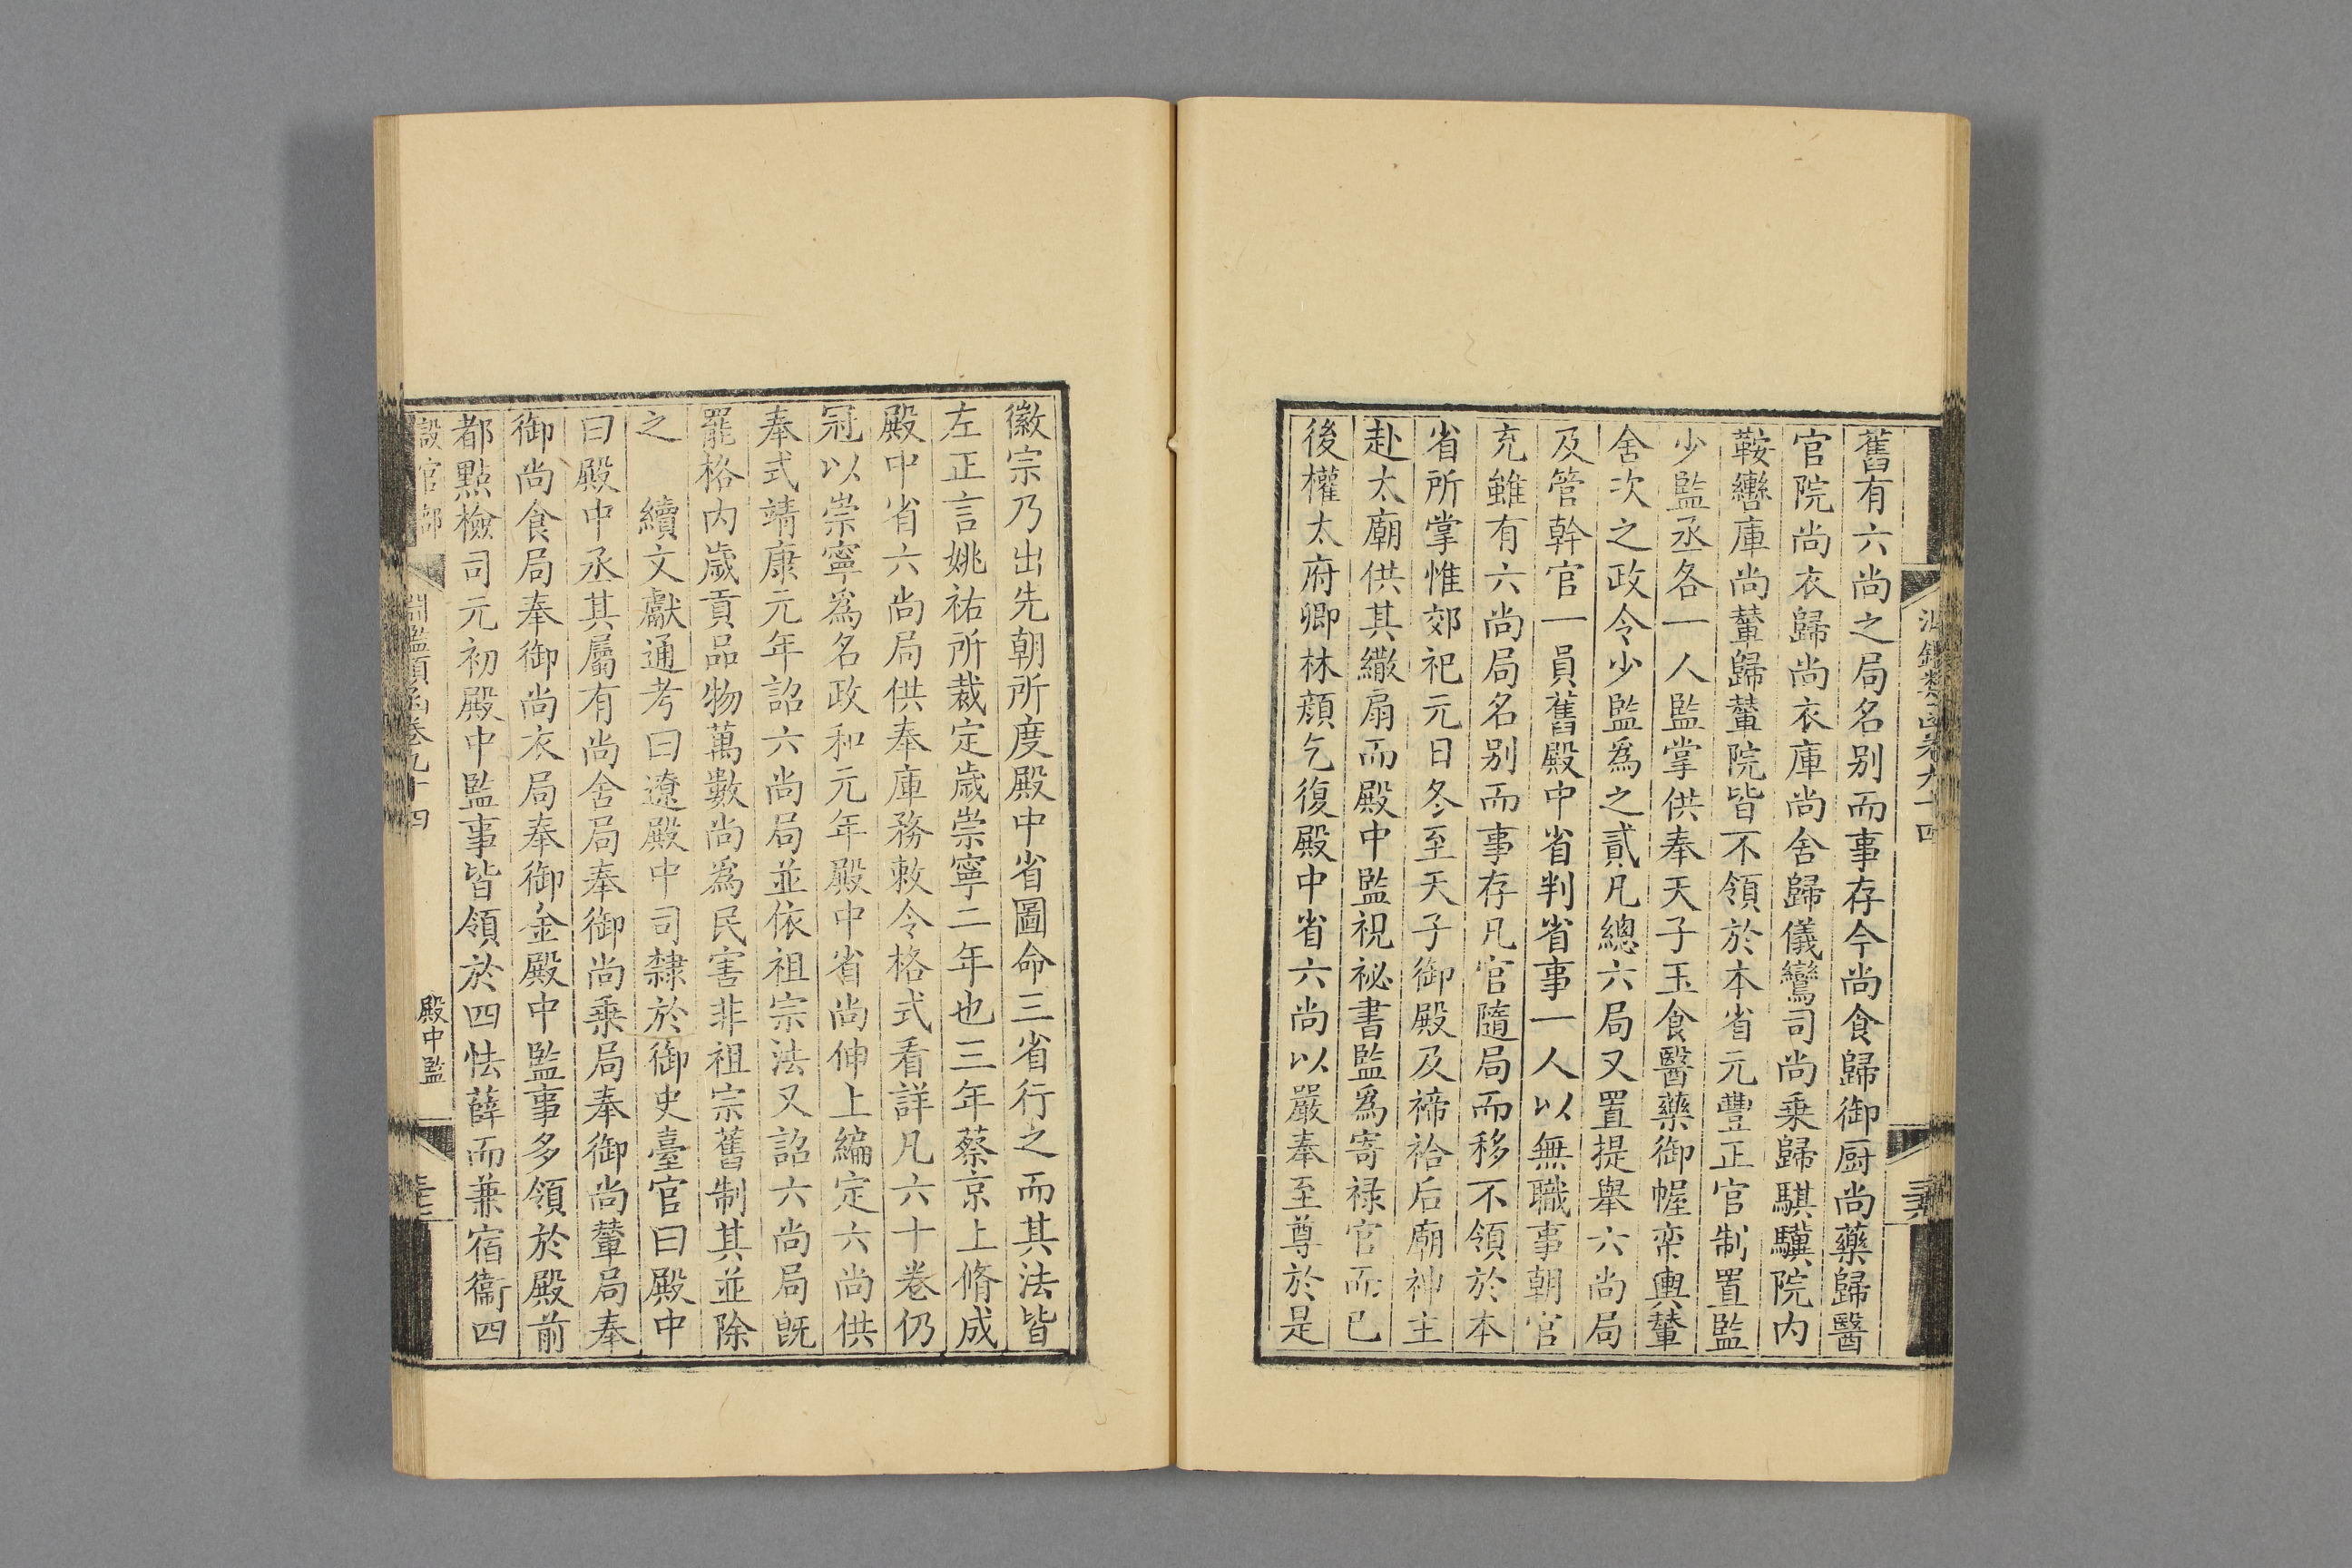 舊有六尚之局名别而事存今尚食歸御厨尚藥歸醫
官院尚衣歸尚衣庫尚舍歸儀鸞司尚乗歸騏驥院内
鞍轡庫尚輦歸輦院皆不領於本省元豐正官制置監
少監丞各一人監掌供奉天子玉食醫藥御幄帟輿輦
舍次之政令少監爲之貳凡總六局又置提舉六尚局
及管幹官一員舊殿中省判省事一人以無職事朝官
充雖有六尚局名别而事存凡官隨局而移不領於本
省所掌惟郊祀元日冬至天子御殿及禘祫后廟神主
赴太廟供其繖扇而殿中監視祕書監爲寄禄官而已
後權太府卿林顔乞復殿中省六尚以嚴奉至尊於是
徽宗乃出先朝所度殿中省圖命三省行之而其法皆
左正言姚祐所裁定歲崇寧二年也三年蔡京上脩成
殿中省六尚局供奉庫務敕令格式看詳凡六十卷仍
冠以崇寧爲名政和元年殿中省尚伸上編定六尚供
奉式靖康元年詔六尚局並依祖宗法又詔六尚局旣
罷格内歲貢品物萬數尚爲民害非祖宗舊制其並除
之　續文獻通考曰遼殿中司隸於御史臺官曰殿中
曰殿中丞其屬有尚舍局奉御尚乗局奉御尚輦局奉
御尚食局奉御尚衣局奉御金殿中監事多領於殿前
都點檢司元初殿中監事皆領於四怯薛而兼宿衞四
設官部
淵鑑類函卷九十四
殿中監